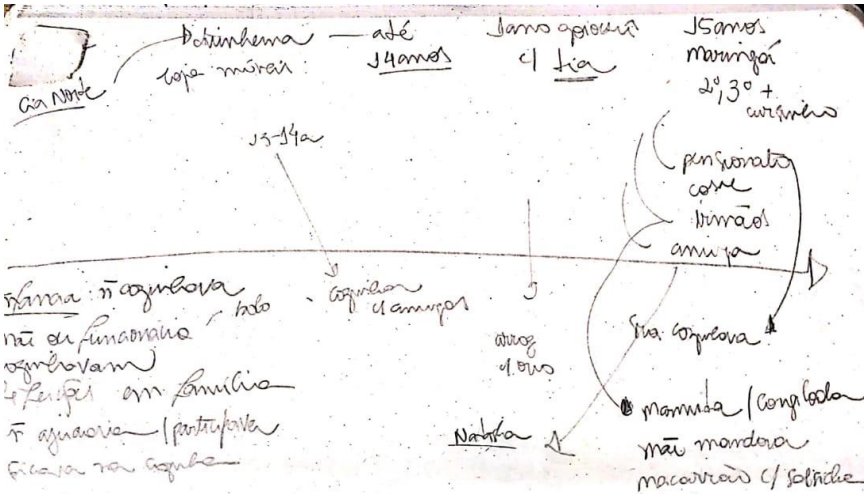 Cia Norte
até
14 anos
loja móveis
1 ano
c/ tia
15 anos
Maringá
2º, 3º +
cursinho
13-14a
pensionato
casa
irmãos
amiga
ñ cozinhava
bolo
cozinhar
c/ amigas
mãe ou funcionária
cozinhavam
refeições em família
ñ ajudava / participava
ficava na cozinha
arroz
c/ ovo
tia cozinhava
marmita / congelada
mãe mandava
macarrão c/ salsicha
Natália